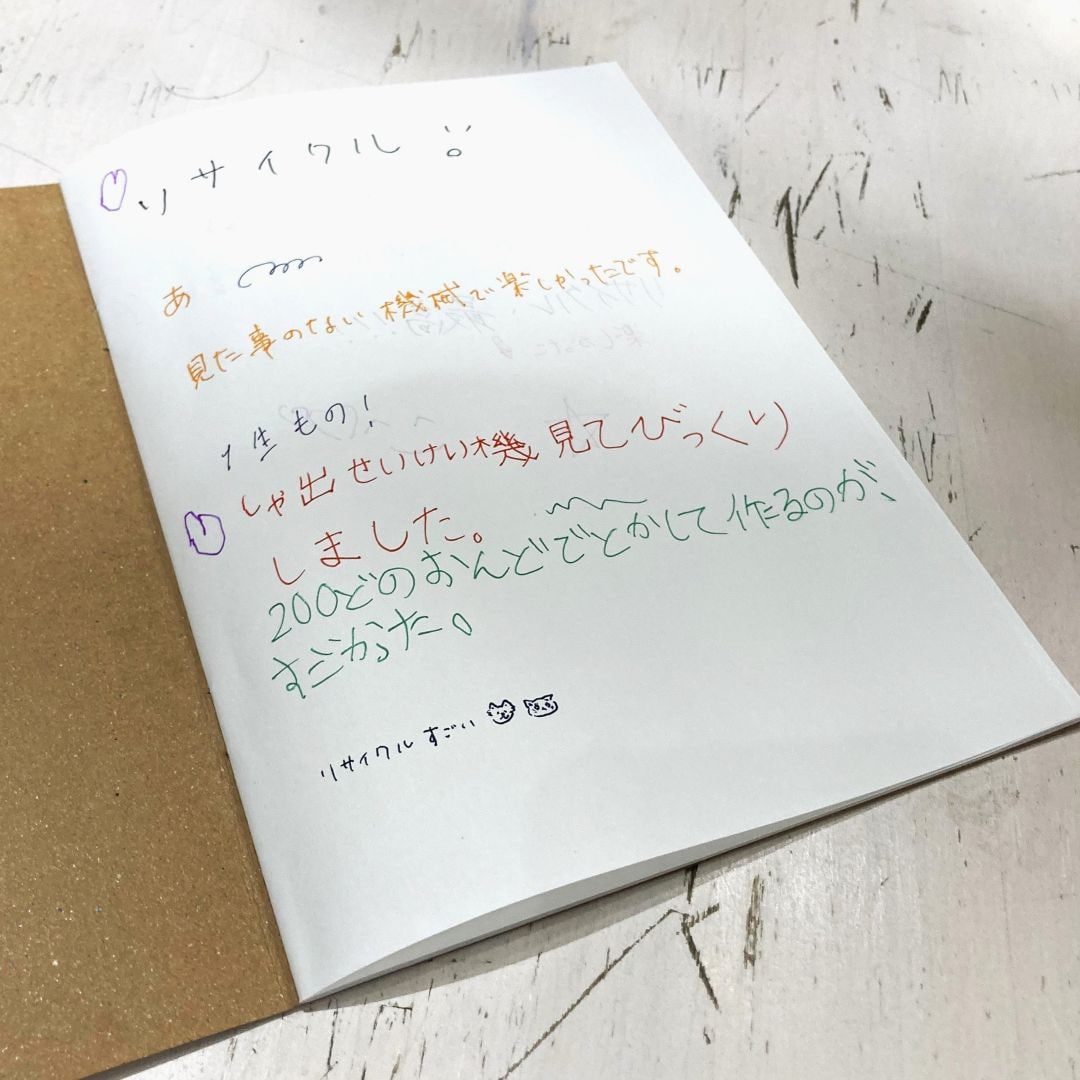 リサイクル
あ
見た事のない機械で楽しかったです。
1生もの!
しゃ出せいけい機見てびっくり
しました。
200どのおんどでとかして作るのが、
すごかった。
リサイクルすごい